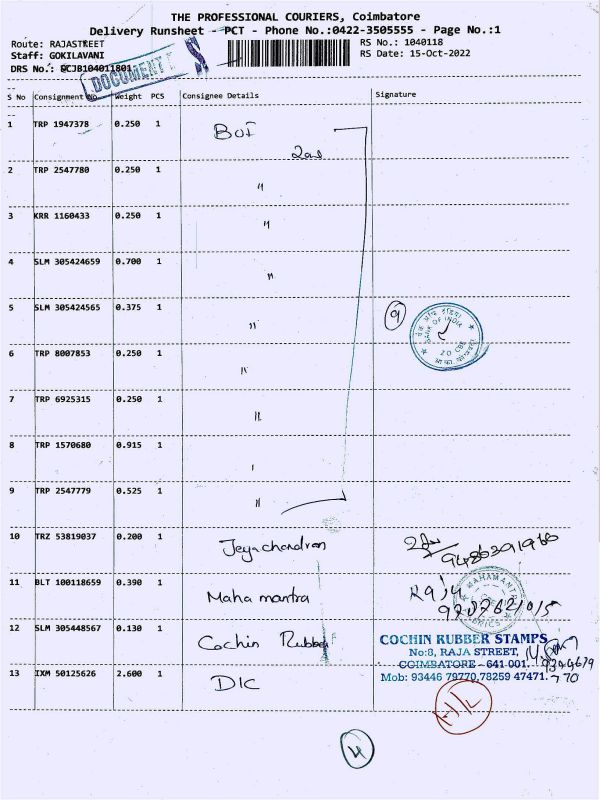 THE PROFESSIONAL COURIERS, Coimbatore
Delivery Runsheet - PCT - Phone No.:0422-3505555 - Page No.:1
Route: RAJASTREET
RS No.: 1040118
Staff: GOKILAVANI
RS Date: 15-Oct-2022
DRS No.: @CJB104011801
DOCUMENT
S No Consignment No Weight PCS Consignee Details Signature
1 TRP 1947378 0.250 1 BOI
2 TRP 2547780 0.250 1 "
3 KRR 1160433 0.250 1 "
4 SLM 305424659 0.700 1 "
5 SLM 305424565 0.375 1 "
9
BANK OF INDIA
6 TRP 8007853 0.250 1 "
7 TRP 6925315 0.250 1 "
8 TRP 1570680 0.915 1
9 TRP 2547779 0.525 1 "
10 TRZ 53819037 0.200 1 Jeyachandran
11 BLT 100118659 0.390 1 Maha mantra Raju
MAHAMANTRA
12 SLM 305448567 0.130 1 Cochin Rubber
COCHIN RUBBER STAMPS
No:8, RAJA STREET,
COIMBATORE - 641 001.
Mob: 93446 79770,78259 47471.
13 IXM 50125626 2.600 1 DIC